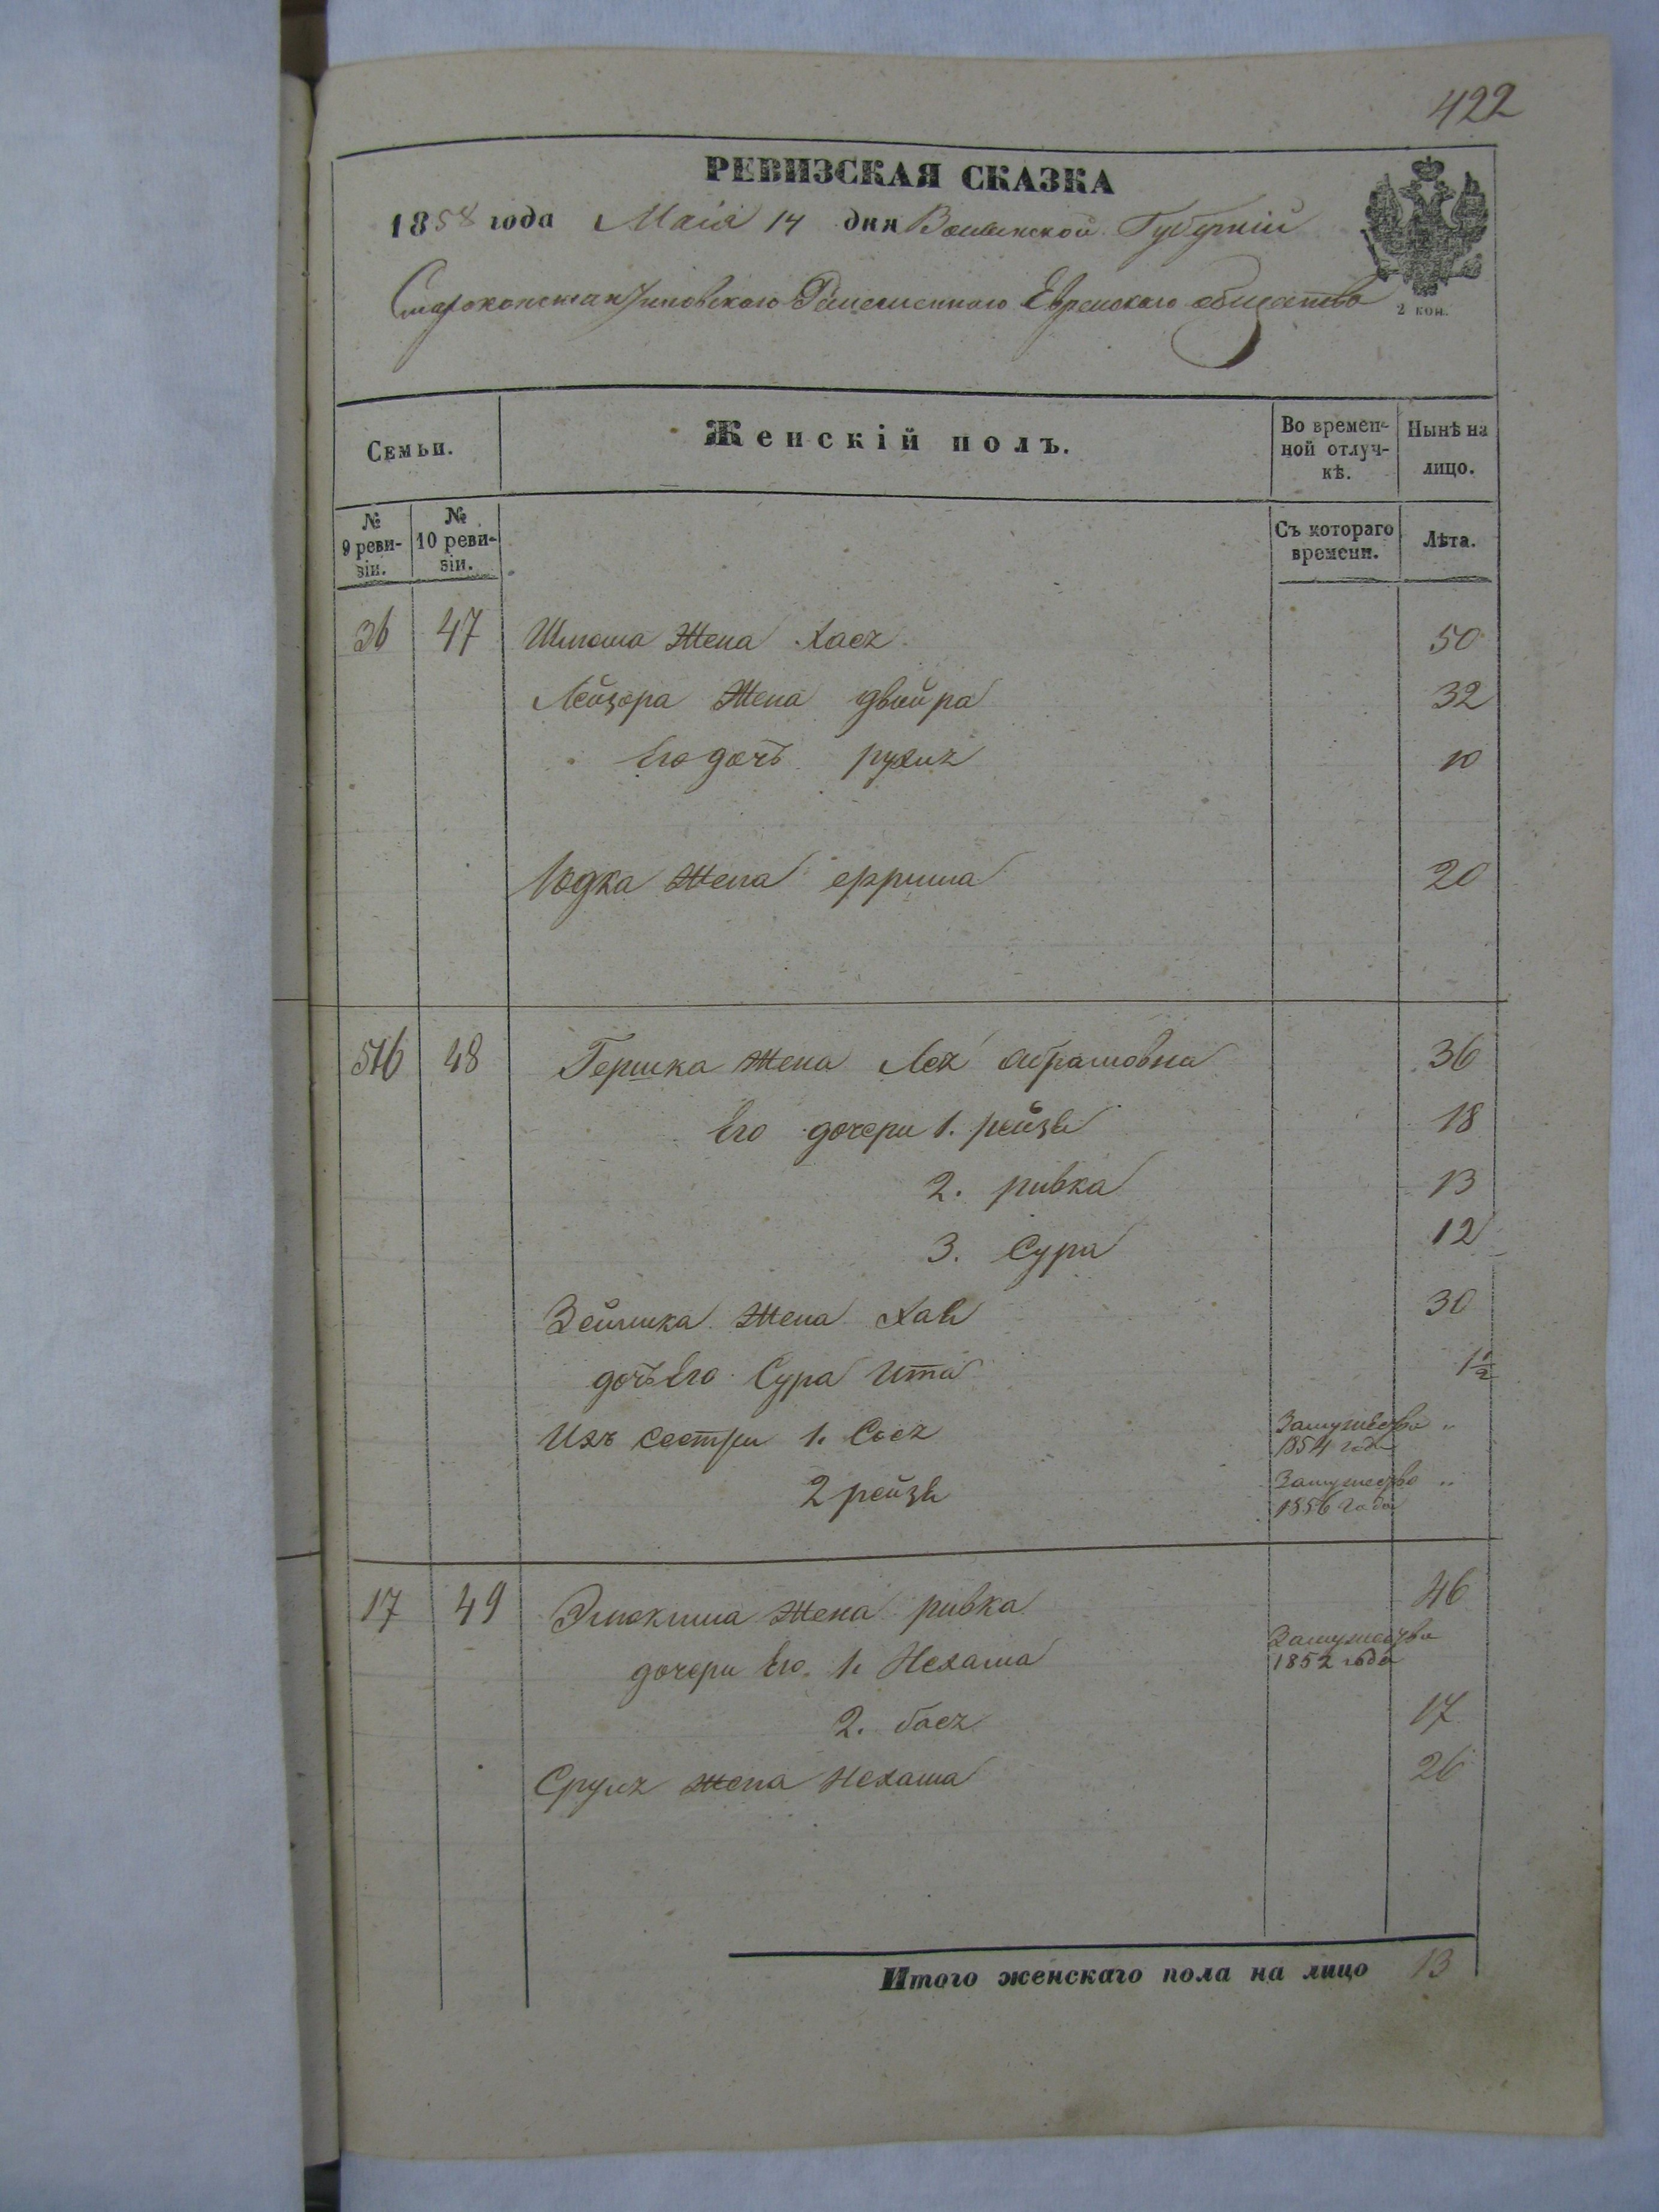 422
РЕВИЗСКАЯ СКАЗКА
1858 года Маія 14 дня Волынской Губерніи
Староконстантиновского Ремесленного Еврейского общества
2 коп.
Семьи.
Женскій полъ.
Во времен-
ной отлуч-
кѣ.
Нынѣ на
лицо.
№
9 реви-
зіи.
№
10 реви-
зіи.
Съ котораго
времени.
Лѣта.
36 47 Шлиома Жена Хася 50
Лейзора Жена двойра 32
Его дочъ рухля 10
Іодка Жена 20
516 48 Гершка Жена Лея Абрамовна 36
Его дочери 1. рейзя 18
2. ривка 13
3. Сура 12
Зейлика Жена Хая 30
дочъ Его Сура Ита 1½
Ихъ сестри 1. Сося Замужество 1854 года "
2 рейзя Замужество 1856 года "
17 49 Жена ривка 46
дочери Его 1. Нехама Замужество 1852 года
2. бася 17
Сруля жена Нехама 26
Итого женскаго пола на лицо 13